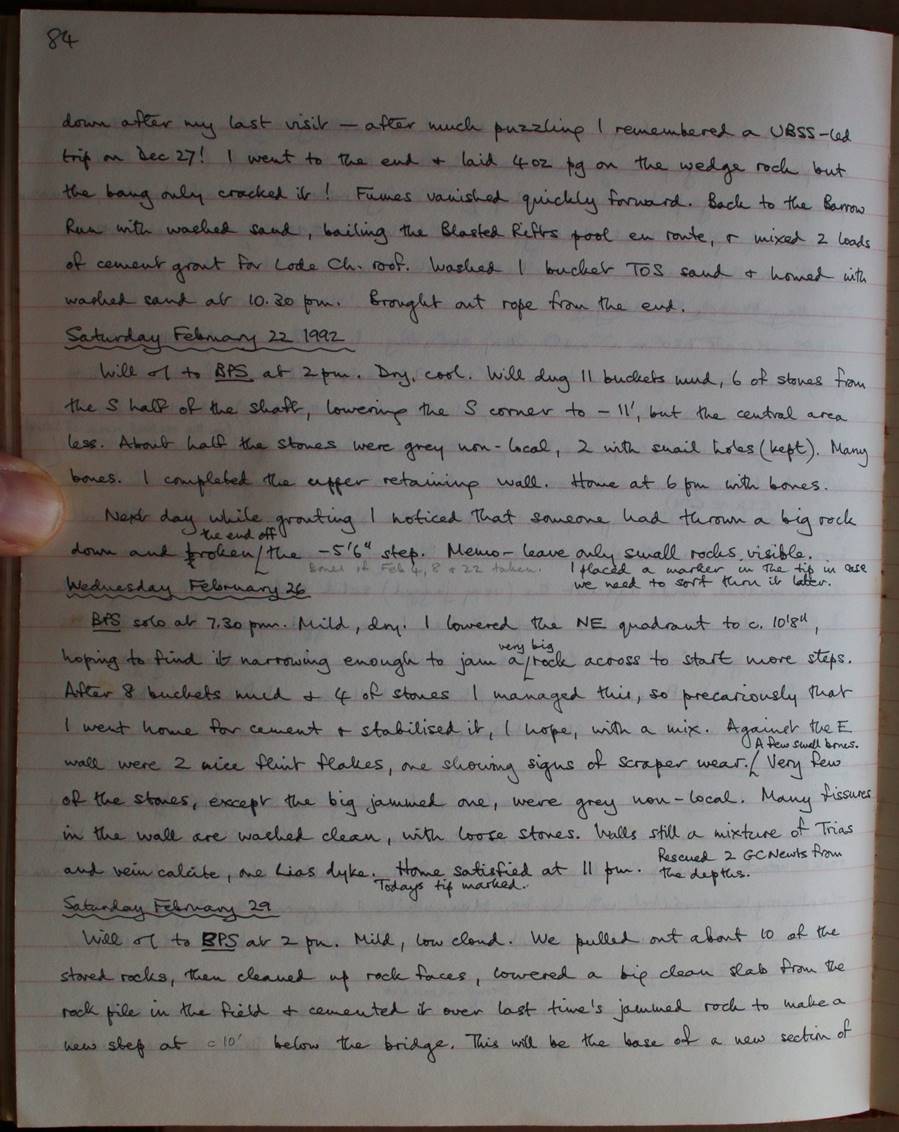 84
down after my last visit — after much puzzling I remembered a UBSS-led
trip on Dec 27! I went to the end + laid 4 oz pg on the wedge rock but
the bang only cracked it! Fumes vanished quickly forward. Back to the Barrow
Run with washed sand, bailing the Blasted Rifts pool en route, + mixed 2 loads
of cement grout for Lode Ch. roof. Washed 1 bucket TOS sand + homed with
washed sand at 10.30 pm. Brought out rope from the end.
Saturday February 22 1992
Will + I to BPS at 2 pm. Dry, cool. Will dug 11 buckets mud, 6 of stones from
the S half of the shaft, lowering the S corner to - 11', but the central area
less. About half the stones were grey non-local, 2 with snail holes (kept). Many
bones. I completed the upper retaining wall. Home at 6 pm with bones.
Next day while grouting I noticed that someone had thrown a big rock
the end off
down and broken / the -5'6" step. Memo - leave only small rocks visible.
Bones of Feb 4, 8 + 22 taken. I placed a marker in the tip in case
we need to sort thru it later.
Wednesday February 26
BPS solo at 7.30 pm. Mild, dry. I lowered the NE quadrant to c. 10'8",
hoping to find it narrowing enough to jam a / very big rock across to start more steps.
After 8 buckets mud + 4 of stones I managed this, so precariously that
I went home for cement + stabilised it, I hope, with a mix. Against the E
A few small bones.
wall were 2 nice flint flakes, one showing signs of scraper wear. / Very few
of the stones, except the big jammed one, were grey non-local. Many fissures
in the wall are washed clean, with loose stones. Walls still a mixture of Trias
and vein calcite, one Lias dyke. Home satisfied at 11 pm. Rescued 2 GCNewts from
the depths.
Todays tip marked.
Saturday February 29
Will + I to BPS at 2 pm. Mild, low cloud. We pulled out about 10 of the
stored rocks, then cleaned up rock faces, lowered a big clean slab from the
rock pile in the field + cemented it over last time's jammed rock to make a
new step at c 10' below the bridge. This will be the base of a new section of